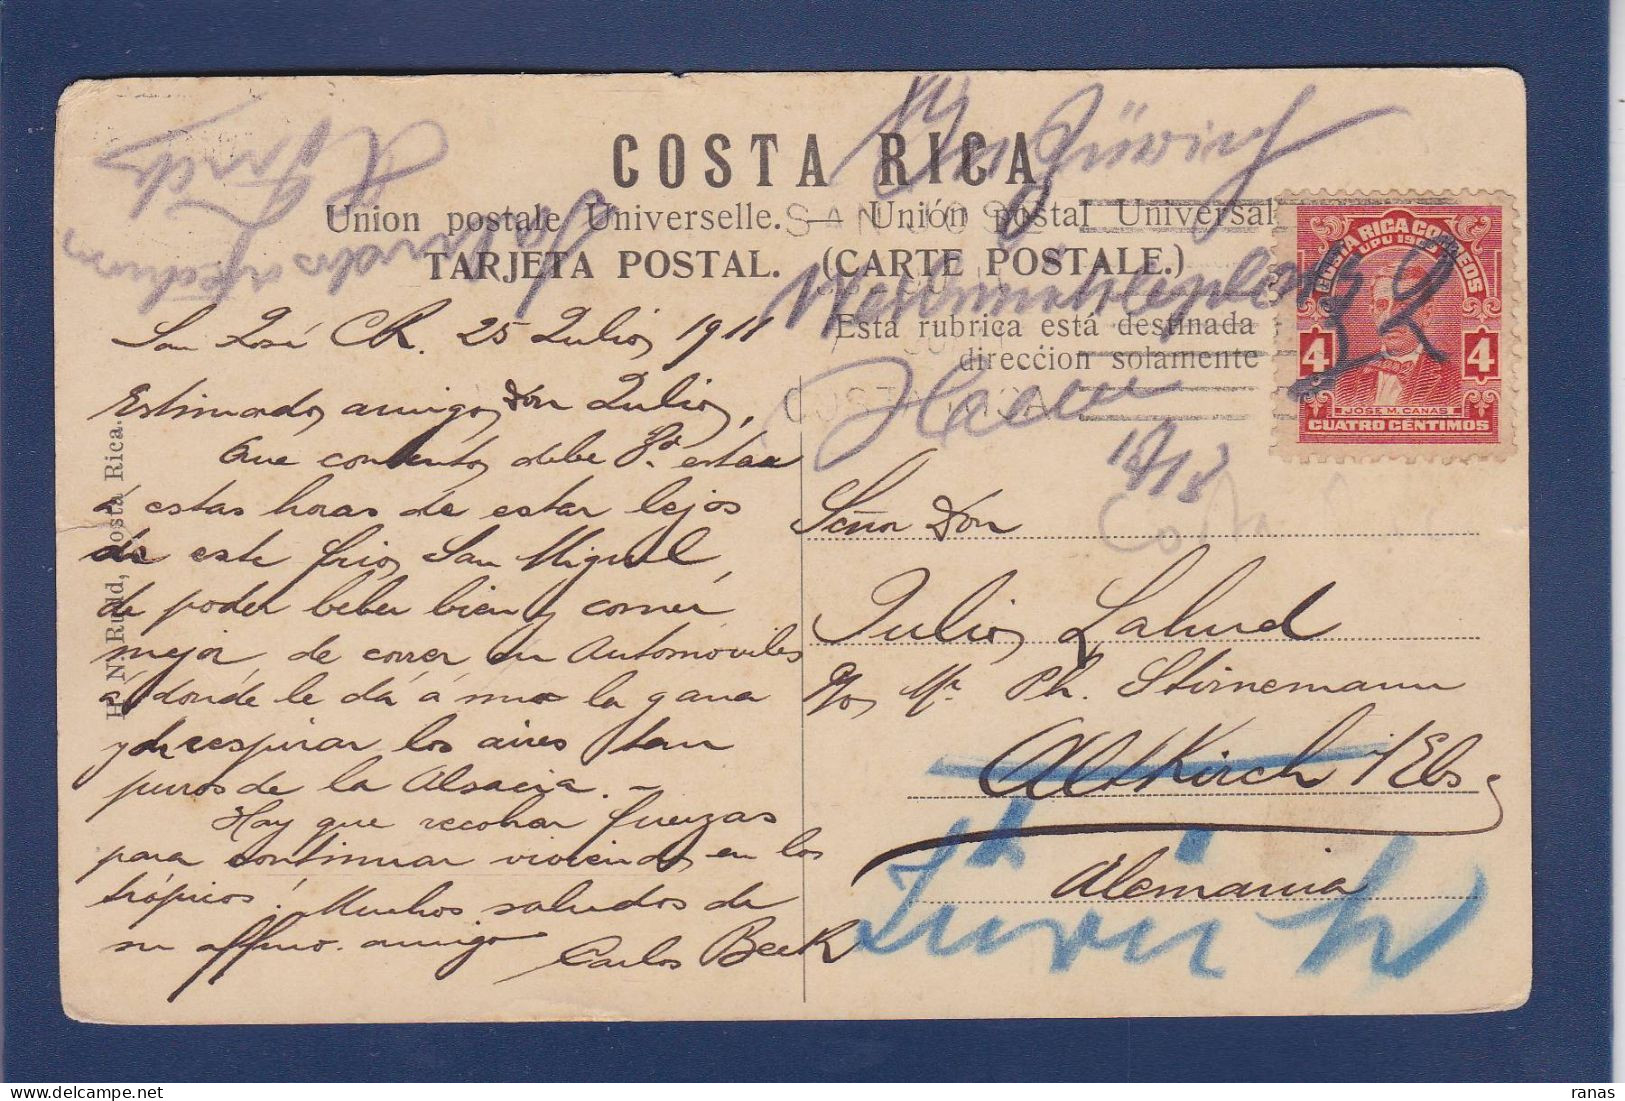 COSTA RICA
Union postale Universelle. — Unión postal Universal
TARJETA POSTAL. (CARTE POSTALE.)
Esta rubrica está destinada
direccion solamente
SAN JOSE
COSTA RICA
COSTA RICA CORREOS
UPU 19
4 4
JOSE M. CAÑAS
CUATRO CÉNTIMOS
H. N. Rudd, Costa Rica.
San José CR. 25 Julio 1911
Estimado amigo Don Julio,
Que contento debe Ud. estar
á estas horas de estar lejos
de este frio San Miguel,
de poder beber bien y comer
mejor de correr en Automoviles
a donde le dá á uno la gana
y de respirar los aires tan
puros de la Alsacia. —
Hay que recobrar fuerzas
para continuar viviendo en los
trópicos! Muchos saludos de
su affmo. amigo Carlos Beck
Zürich
Señor Don
Julio Lahud
c/o Mr. Ph. Stirnemann
Altkirch i/Els
Alemania
Zürich
Costa
ranas